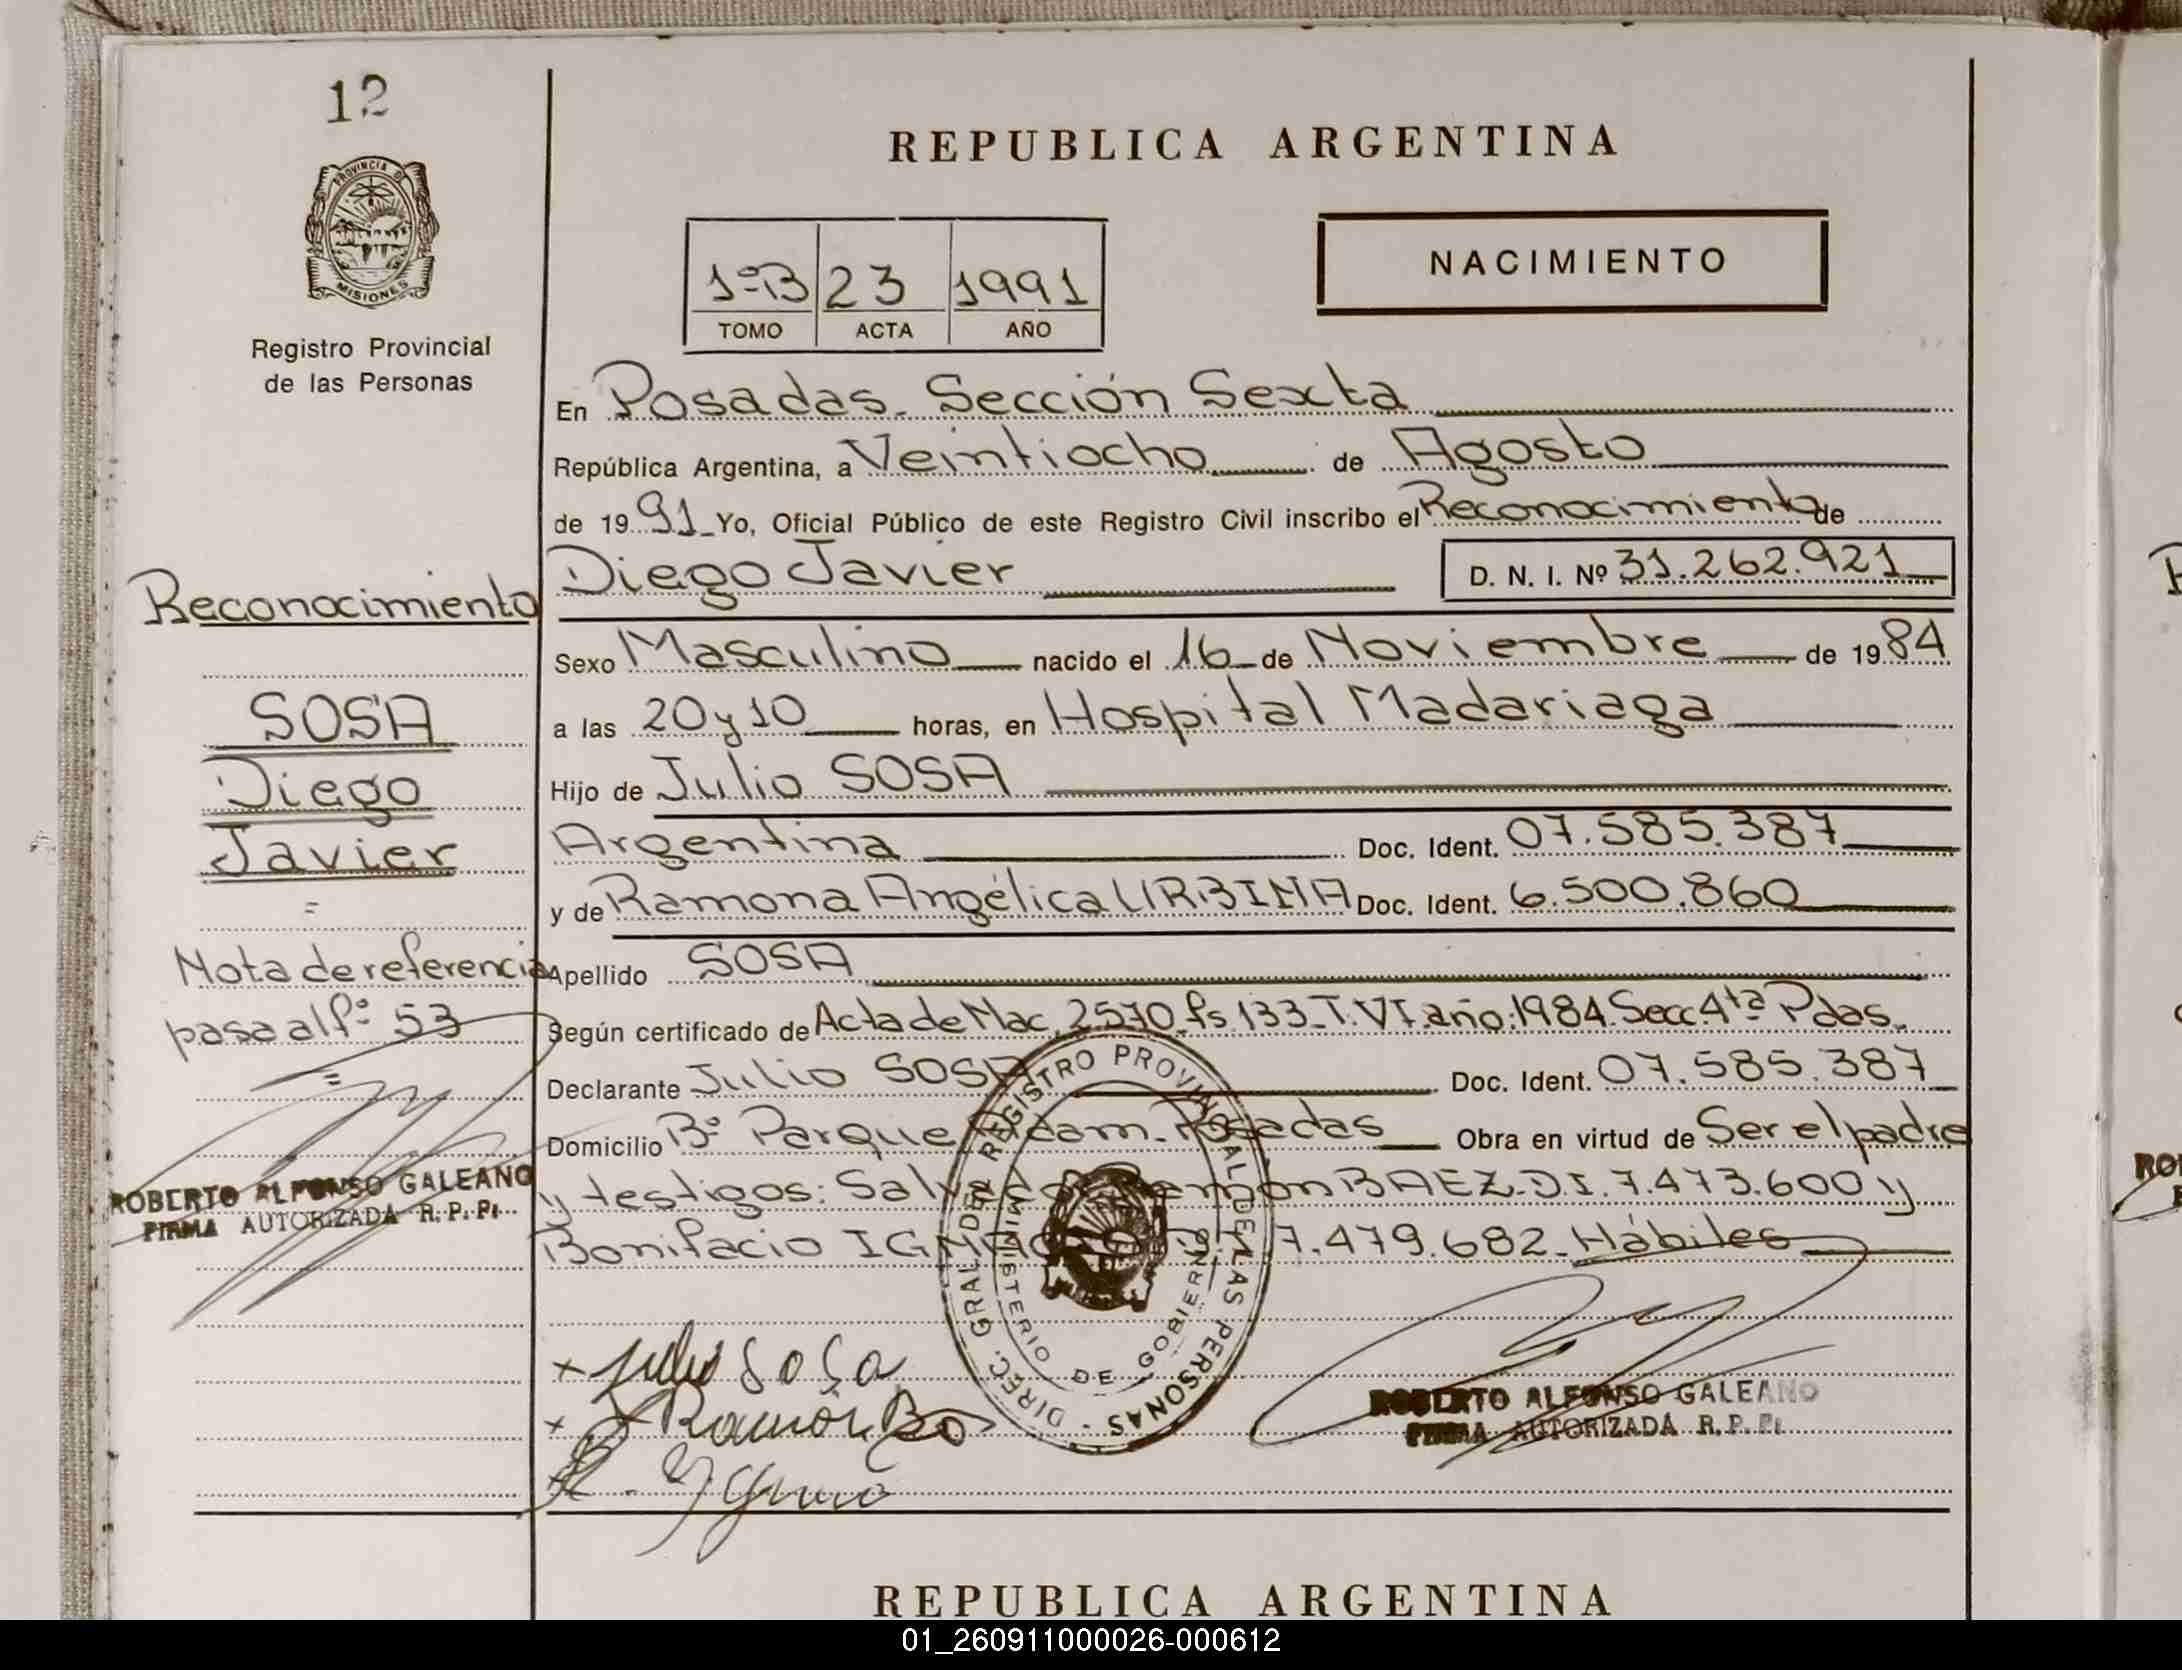 12
PROVINCIA D
MISIONES
Registro Provincial
de las Personas
REPUBLICA ARGENTINA
NACIMIENTO
1º-B 23 1991
TOMO ACTA AÑO
En Posadas. Sección Sexta
República Argentina, a Veintiocho de Agosto
de 19 91 Yo, Oficial Público de este Registro Civil inscribo el Reconocimiento de
Diego Javier D. N. I. Nº 31.262.921
Sexo Masculino nacido el 16 de Noviembre de 19 84
a las 20 y 10 horas, en Hospital Madariaga
Hijo de Julio SOSA
Argentina Doc. Ident. 07.585.387
y de Ramona Angélica URBINA Doc. Ident. 6.500.860
Apellido SOSA
Según certificado de Acta de Nac. 2570 fs 133 T. VI año: 1984. Secc. 4ta Pdas.
Declarante Julio SOSA Doc. Ident. 07.585.387
Domicilio Bº Parque Adam. Posadas Obra en virtud de Ser el padre
y testigos: Salvador Ramón BAEZ. D.I. 7.473.600 y
Bonifacio 7.479.682. Hábiles
Reconocimiento
SOSA
Diego
Javier
=
Nota de referencia
pasa al fº 53
=
ROBERTO ALFONSO GALEANO
FIRMA AUTORIZADA R. P. P.
DIREC. GRAL DEL REGISTRO PROVINCIAL DE LAS PERSONAS -
MINISTERIO DE GOBIERNO
x Julio Sosa
x Ramón
ROBERTO ALFONSO GALEANO
FIRMA AUTORIZADA R. P. P.
REPUBLICA ARGENTINA
01_260911000026-000612